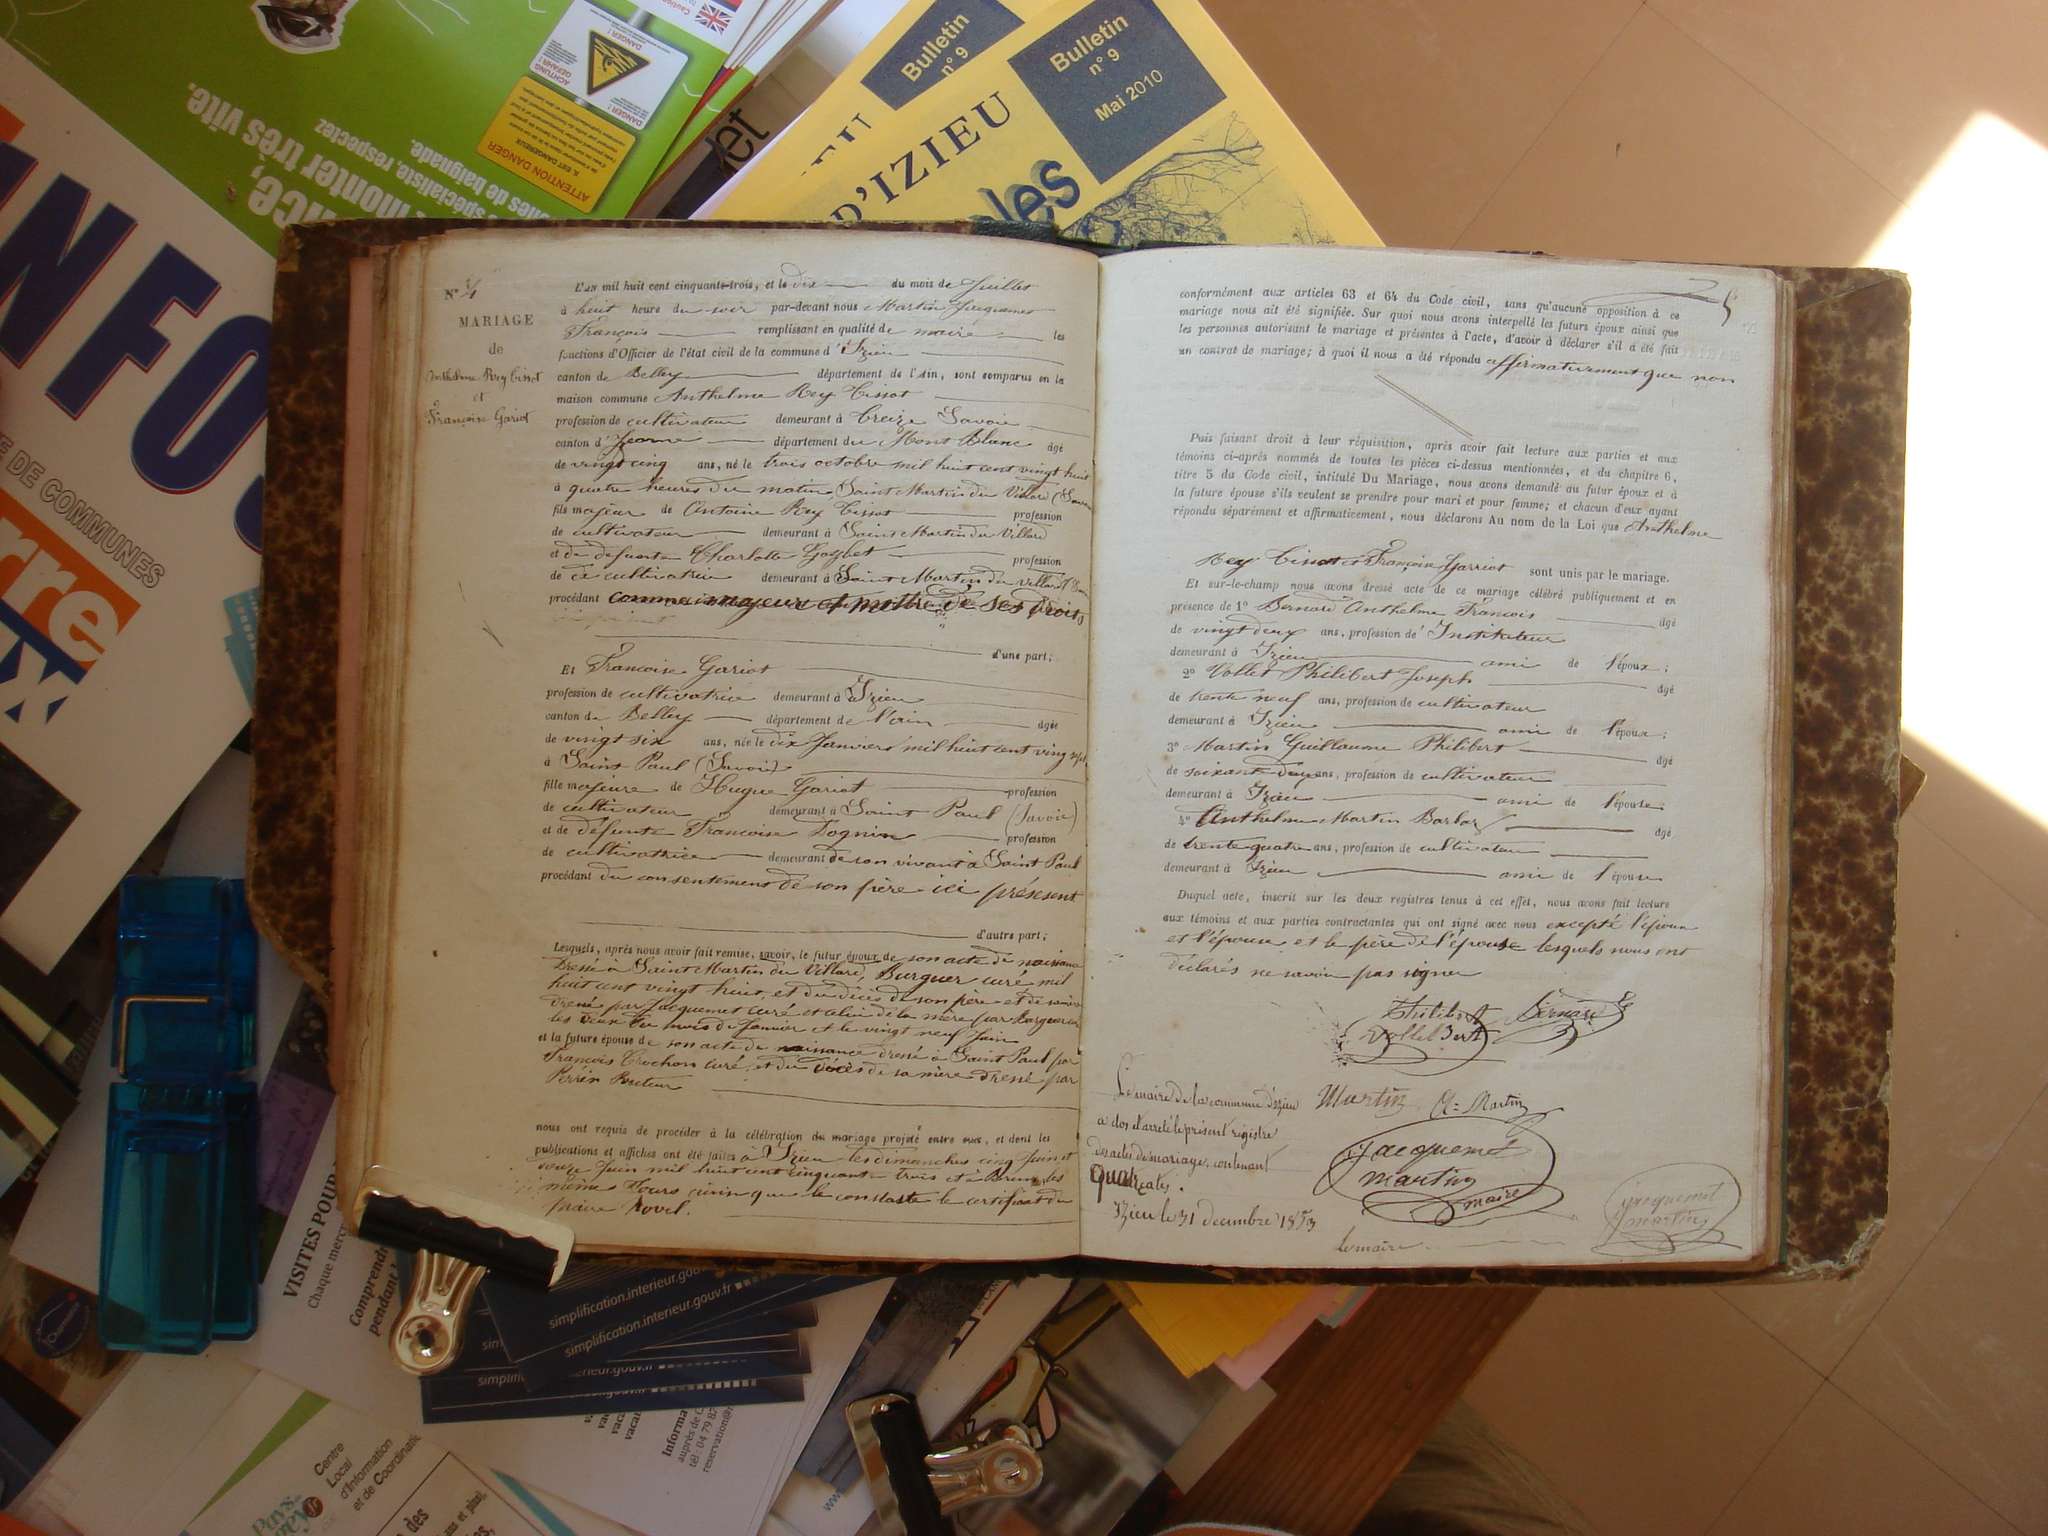 N° 4
MARIAGE
de
Anthelme Rey Tissot
et
Françoise Gariot
L'an mil huit cent cinquante-trois, et le dix du mois de Juillet
à huit heure du soir par-devant nous Martin Jacquemet
François remplissant en qualité de maire les
fonctions d'Officier de l'état civil de la commune d'Izieu
canton de Belley département de l'Ain, sont comparus en la
maison commune Anthelme Rey Tissot
profession de cultivateur demeurant à Treize Savoie
canton d' département du Mont Blanc âgé
de vingt cinq ans, né le trois octobre mil huit cent vingt huit
à quatre heures du matin, Saint Martin du Villard (Savoie
fils majeur de Antoine Rey Tissot profession
de cultivateur demeurant à Saint Martin du Villard
et de défunte Charlotte profession
de cultivatrice demeurant à Saint Martin du Villard
procédant comme majeur et maître de ses droits
d'une part;
Et Françoise Gariot
profession de cultivatrice demeurant à Izieu
canton de Belley département de l'ain âgée
de vingt six ans, née le dix Janvier mil huit cent vingt sept
à Saint Paul (Savoie)
fille majeure de Hugue Gariot profession
de cultivateur demeurant à Saint Paul (Savoie)
et de défunte Françoise Tognin profession
de cultivatrice demeurant de son vivant à Saint Paul
procédant du consentement de son père ici présent
d'autre part;
Lesquels, après nous avoir fait remise, savoir, le futur époux de son acte de naissance
dressé à Saint Martin du Villard, Burguer curé mil
huit cent vingt huit, et du décès de son père et de sa mère
dressé par Jacquemet curé et celui de la mère par Burguer
les deux du mois de Janvier et le vingt neuf Juin
et la future épouse de son acte de naissance dressé à Saint Paul par
François Crochon curé, et du décès de sa mère dressé par
Perrin Recteur
nous ont requis de procéder à la célébration du mariage projeté entre eux, et dont les
publications et affiches ont été faites à Izieu les dimanches cinq Juin et
douze Juin mil huit cent cinquante trois et à les
mêmes Jours ainsi que le constate le certificat du
maire Rovel.
5
conformément aux articles 63 et 64 du Code civil, sans qu'aucune opposition à ce
mariage nous ait été signifiée. Sur quoi nous avons interpellé les futurs époux ainsi que
les personnes autorisant le mariage et présentes à l'acte, d'avoir à déclarer s'il a été fait
un contrat de mariage; à quoi il nous a été répondu affirmativement que non
Puis faisant droit à leur réquisition, après avoir fait lecture aux parties et aux
témoins ci-après nommés de toutes les pièces ci-dessus mentionnées, et du chapitre 6,
titre 5 du Code civil, intitulé Du Mariage, nous avons demandé au futur époux et à
la future épouse s'ils veulent se prendre pour mari et pour femme; et chacun d'eux ayant
répondu séparément et affirmativement, nous déclarons Au nom de la Loi que Anthelme
Rey Tissot et Françoise Garriot sont unis par le mariage.
Et sur-le-champ nous avons dressé acte de ce mariage célébré publiquement et en
présence de 1° Bernard Anthelme François âgé
de vingt deux ans, profession d'Instituteur
demeurant à Izieu ami de l'époux;
2° Vollet Philibert Joseph âgé
de trente neuf ans, profession de cultivateur
demeurant à Izieu ami de l'époux;
3° Martin Guillaume Philibert âgé
de soixante deux ans, profession de cultivateur
demeurant à Izieu ami de l'épouse;
4° Anthelme Martin Barbaz âgé
de trente quatre ans, profession de cultivateur
demeurant à Izieu ami de l'épouse
Duquel acte, inscrit sur les deux registres tenus à cet effet, nous avons fait lecture
aux témoins et aux parties contractantes qui ont signé avec nous excepté l'époux
et l'épouse et le père de l'épouse lesquels nous ont
déclarés ne savoir pas signer
Philibert Bernard
Vollet
Martin A. Martin
Jacquemet
Martin
maire
Le maire de la commune d'Izieu
a clos et arrêté le présent registre
des actes de mariage, contenant
Quatre actes.
Izieu le 31 décembre 1853
le maire
Jacquemet
Martin
Bulletin
n° 9
Bulletin
n° 9
Mai 2010
D'IZIEU
INFO
DE COMMUNES
ATTENTION DANGER
DANGER !
monter très vite.
spécialiste, respectez
de baignade.
VISITES POUR
Comprendre
pendant
simplification.interieur.gouv.fr
simplification.interieur.gouv.fr
Centre
Local
d'Information
et de Coordination